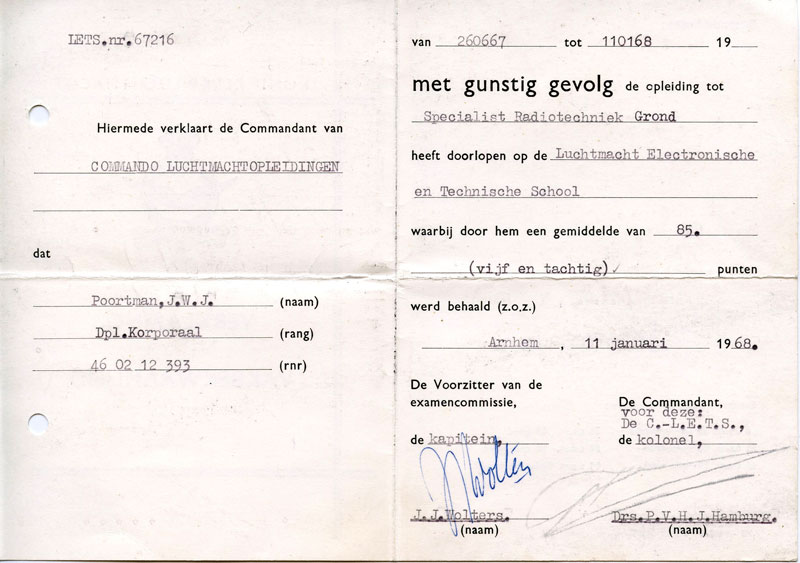 LETS.nr.67216
Hiermede verklaart de Commandant van
COMMANDO LUCHTMACHTOPLEIDINGEN
dat
Poortman,J.W.J. (naam)
Dpl.Korporaal (rang)
46 02 12 393 (rnr)
van 260667 tot 110168 19
met gunstig gevolg de opleiding tot
Specialist Radiotechniek Grond
heeft doorlopen op de Luchtmacht Electronische
en Technische School
waarbij door hem een gemiddelde van 85.
(vijf en tachtig) punten
werd behaald (z.o.z.)
Arnhem , 11 januari 1968.
De Voorzitter van de
examencommissie,
de kapitein,
JJWolters
J.J.Wolters.
(naam)
De Commandant,
voor deze:
De C.-L.E.T.S.,
de kolonel,
Drs.P.V.H.J.Hamburg.
(naam)